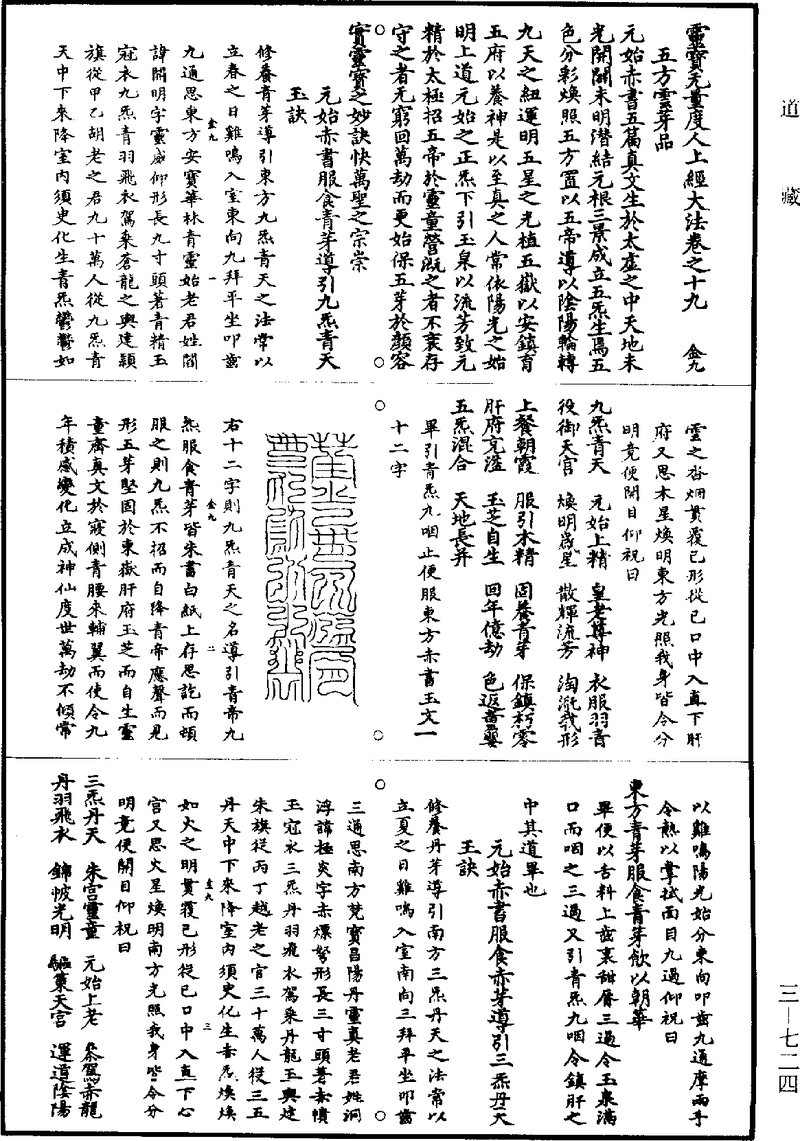 道藏
三—七二四
靈寶无量度人上經大法卷之十九　金九
五方雲芽品
元始赤書五篇真文生於太虛之中天地未
光開闢未明潛結元根三景成立五炁生焉五
色分彩煥照五方置以五帝導以陰陽輪轉
九天之紐運明五星之光植五嶽以安鎮育
五府以養神是以至真之人常依陽光之始
明上道元始之正炁下引玉泉以流芳致元
精於太極招五帝於靈童營溉之者不衰存
守之者无窮回萬劫而更始保五芽於顏容
實靈寶之妙訣快萬聖之宗崇
元始赤書服食青芽導引九炁青天
玉訣
修養青芽導引東方九炁青天之法常以
立春之日雞鳴入室東向九拜平坐叩齒
九通思東方安寶華林青靈始老君姓閻
諱開明字靈威仰形長九寸頭著青精玉
冠衣九炁青羽飛衣駕乘蒼龍之輿建鶉
旗從甲乙胡老之君九十萬人從九炁青
天中下來降室內須臾化生青炁鬱鬱如
雲之沓烟貫覆己形從己口中入直下肝
府又思木星煥明東方光照我身皆令分
明竟便開目仰祝曰
九炁青天　元始上精　皇老尊神　衣服羽青
役御天官　煥明歲星　散輝流芳　陶溉我形
上餐朝霞　服引木精　固養青芽　保鎮朽零
肝府充溢　玉芝自生　回年億劫　色返童嬰
五炁混合　天地長并
畢引青炁九咽止便服東方赤書玉文一
十二字
右十二字則九炁青天之名導引青帝九
炁服食青芽皆朱書白紙上存思訖而頓
服之則九炁不招而自降青帝應聲而見
形五芽堅固於東嶽肝府玉芝而自生靈
童齋真文於寢側青腰來輔翼而使令九
年積感變化立成神仙度世萬劫不傾常
以雞鳴陽光始分東向叩齒九通摩兩手
令熱以掌拭面目九過仰祝曰
東方青芽服食青芽飲以朝華
畢便以舌料上齒裏甜唇三過令玉泉滿
口而咽之三過又引青炁九咽令鎮肝之
中其道畢也
元始赤書服食赤芽導引三炁丹天
玉訣
修養丹芽導引南方三炁丹天之法常以
立夏之日雞鳴入室南向三拜平坐叩齒
三通思南方梵寶昌陽丹靈真老君姓洞
浮諱極炎字赤熛弩形長三寸頭著赤幘
玉冠衣三炁丹羽飛衣駕乘丹龍玉輿建
朱旗從丙丁越老之官三十萬人從三五
丹天中下來降室內須臾化生赤炁煥煥
如火之明貫覆己形從己口中入直下心
宮又思火星煥明南方光照我身皆令分
明竟便開目仰祝曰
三炁丹天　朱宮靈童　元始上老　乘駕赤龍
丹羽飛衣　錦帔光明　驅策天宮　運道陰陽